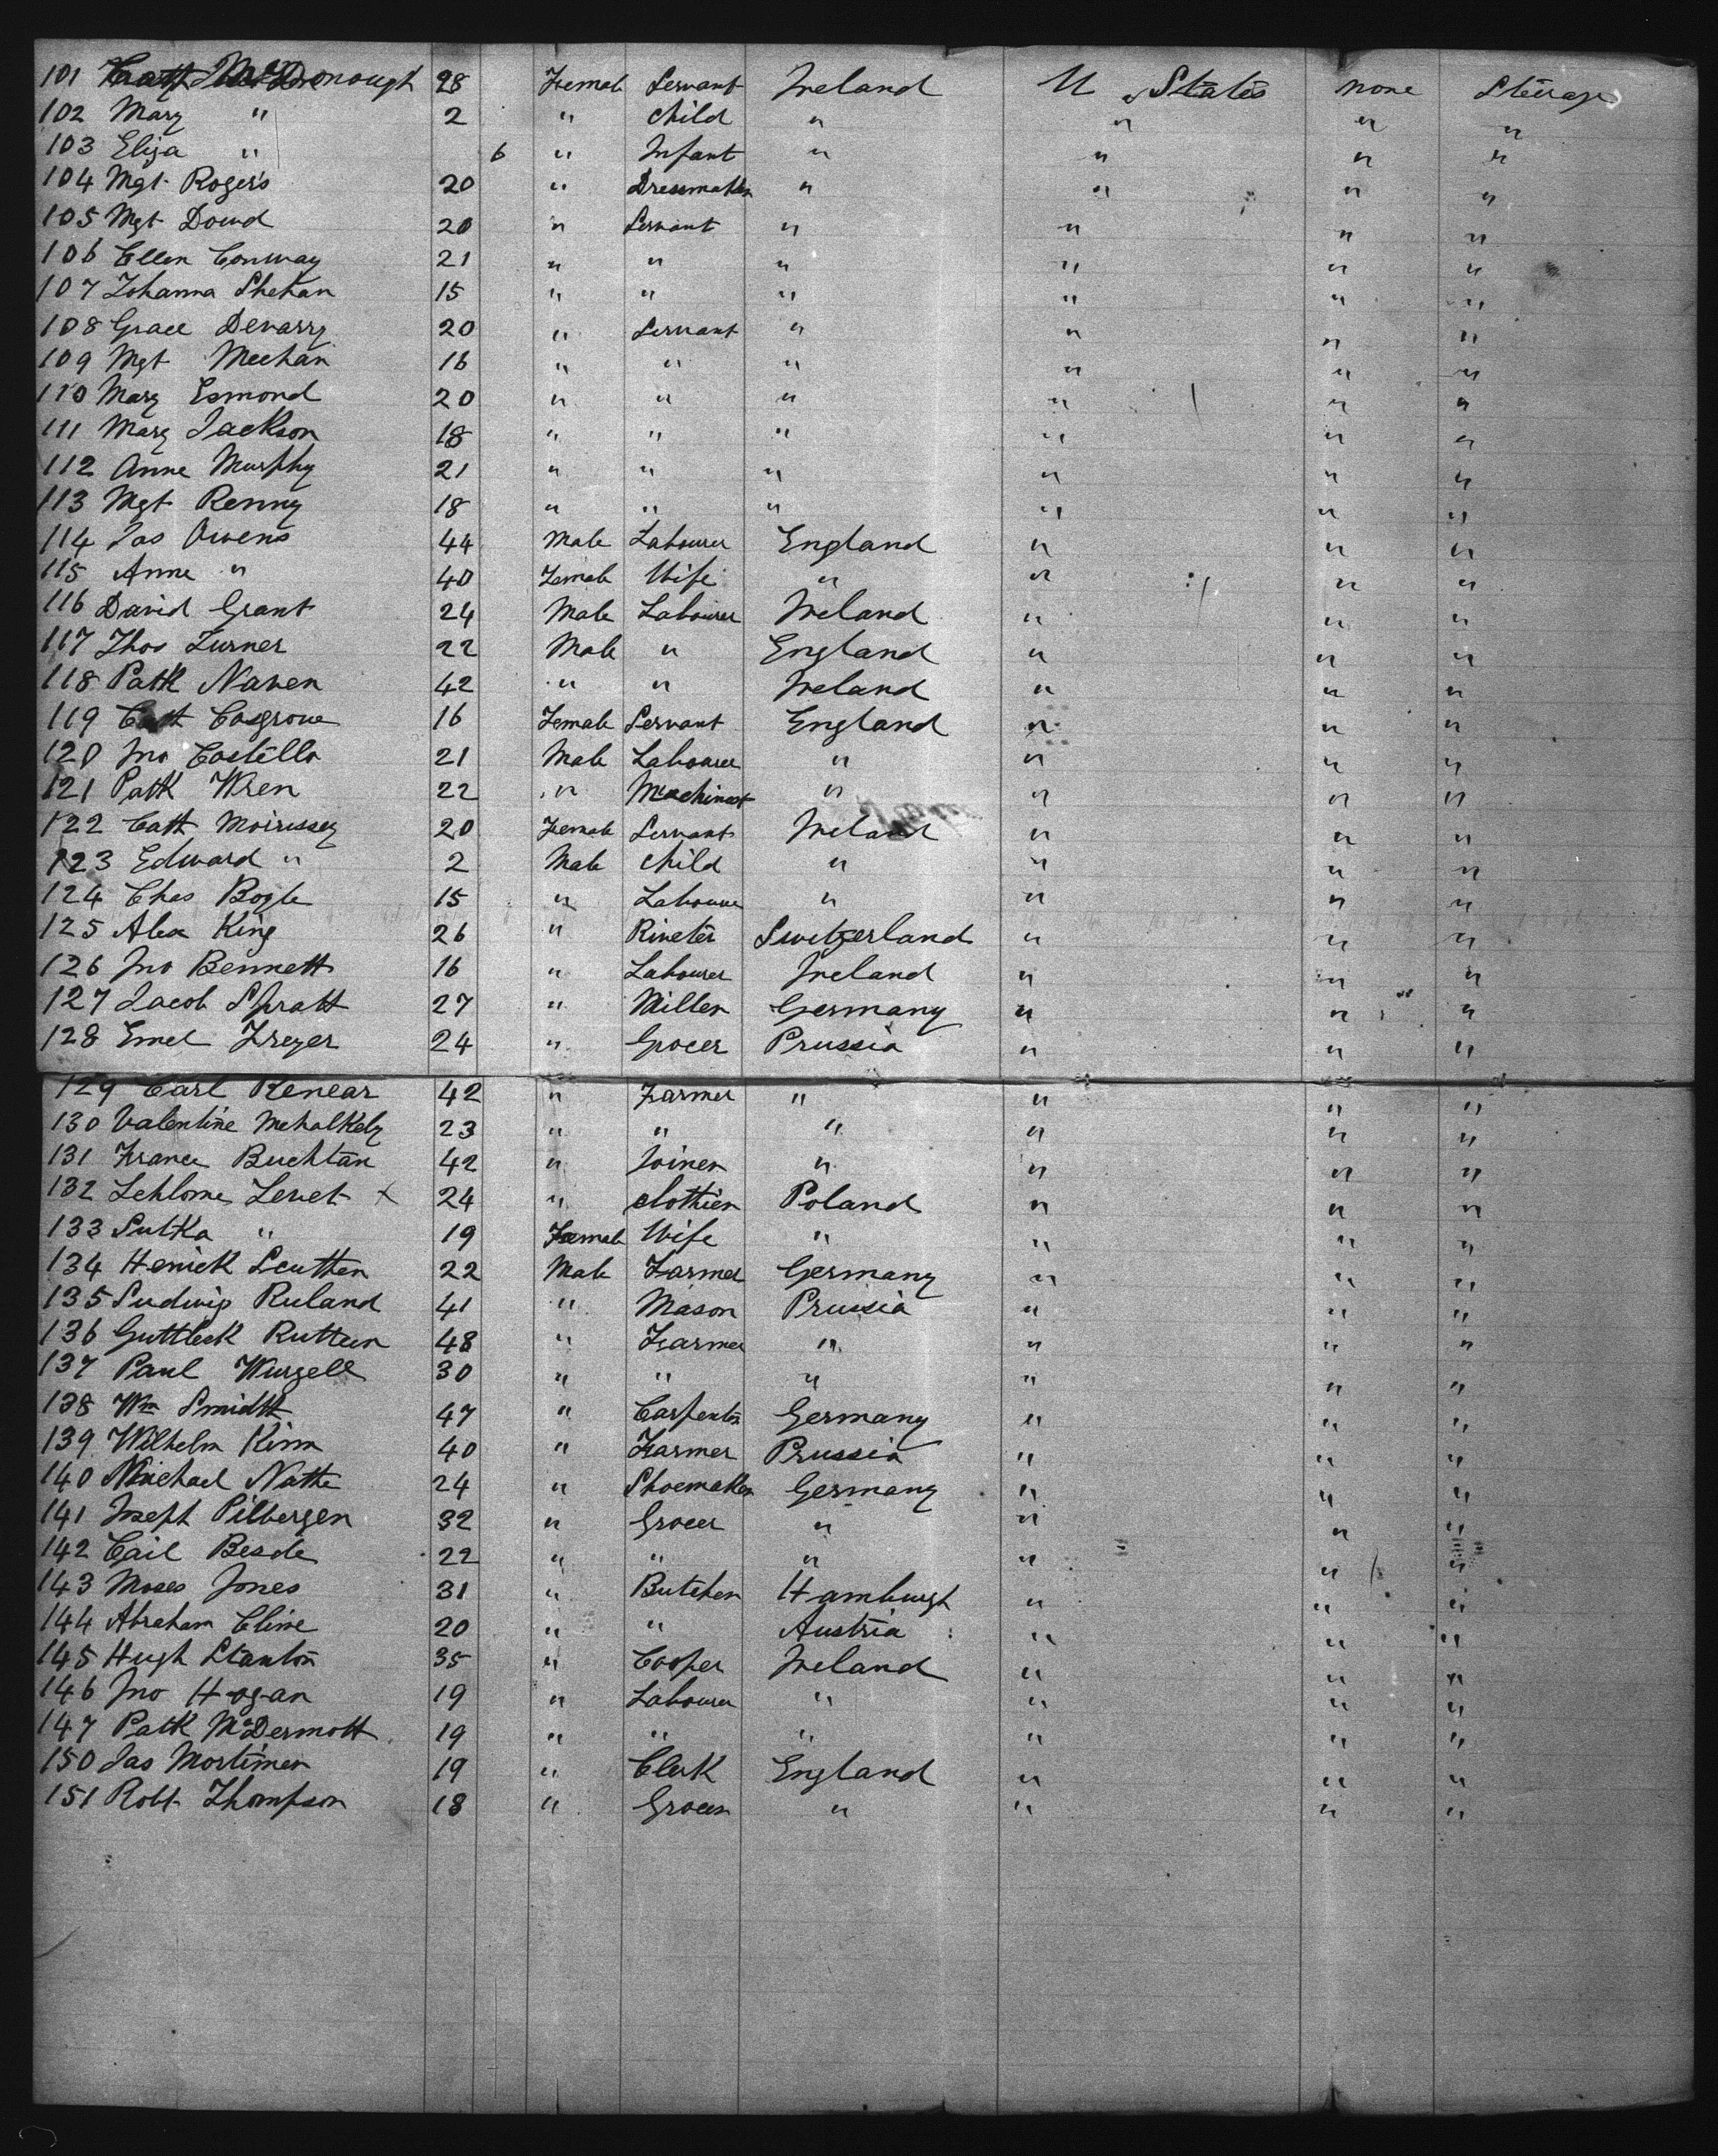 101 Cath McDonough 28 Female Servant Ireland U States none Steerage
102 Mary " 2 " Child " " " "
103 Eliza " 6 " Infant " " " "
104 Mgt Rogers 20 " Dressmaker " " " "
105 Mgt Dowd 20 " Servant " " " "
106 Ellen Conway 21 " " " " " "
107 Johanna Shehan 15 " " " " " "
108 Grace Devarry 20 " Servant " " " "
109 Mgt Meehan 16 " " " " " "
110 Mary Esmond 20 " " " " " "
111 Mary Jackson 18 " " " " " "
112 Anne Murphy 21 " " " " " "
113 Mgt Renny 18 " " " " " "
114 Jas Owens 44 Male Labourer England " " "
115 Anne " 40 Female Wife " " " "
116 David Grant 24 Male Labourer Ireland " " "
117 Thos Turner 22 Male " England " " "
118 Patk Naven 42 " " Ireland " " "
119 Cath Cosgrove 16 Female Servant England " " "
120 Jno Costello 21 Male Labourer " " " "
121 Patk Wren 22 " Machinest " " " "
122 Cath Moirissey 20 Female Servant Ireland " " "
123 Edward " 2 Male Child " " " "
124 Chas Bogle 15 " Labourer " " " "
125 Alex King 26 " Riveter Switzerland " " "
126 Jno Bennett 16 " Labourer Ireland " " "
127 Jacob Spratt 27 " Miller Germany " " "
128 Emel Freyer 24 " Grocer Prussia " " "
129 Carl Renear 42 " Farmer " " " "
130 Valentine Mehalkely 23 " " " " " "
131 France Buchtan 42 " Joiner " " " "
132 Lehlome Levet x 24 " Clothier Poland " " "
133 Sutka " 19 Female Wife " " " "
134 Henick Scutter 22 Male Farmer Germany " " "
135 Ludwig Ruland 41 " Mason Prussia " " "
136 Guttleck Rutteen 48 " Farmer " " " "
137 Paul Wurzell 30 " " " " " "
138 Wm Smidtt 47 " Carpenter Germany " " "
139 Wilhelm Kinn 40 " Farmer Prussia " " "
140 Michael Nathe 24 " Shoemaker Germany " " "
141 Joseph Pilbergen 32 " Grocer " " " "
142 Cail Besde 22 " " " " " "
143 Moses Jones 31 " Butcher Hamburgh " " "
144 Abraham Cline 20 " " Austria " " "
145 Hugh Stanton 35 " Cooper Ireland " " "
146 Jno Hogan 19 " Labourer " " " "
147 Patk McDermott 19 " " " " " "
150 Jas Mortimer 19 " Clerk England " " "
151 Robt Thompson 18 " Grocer " " " "